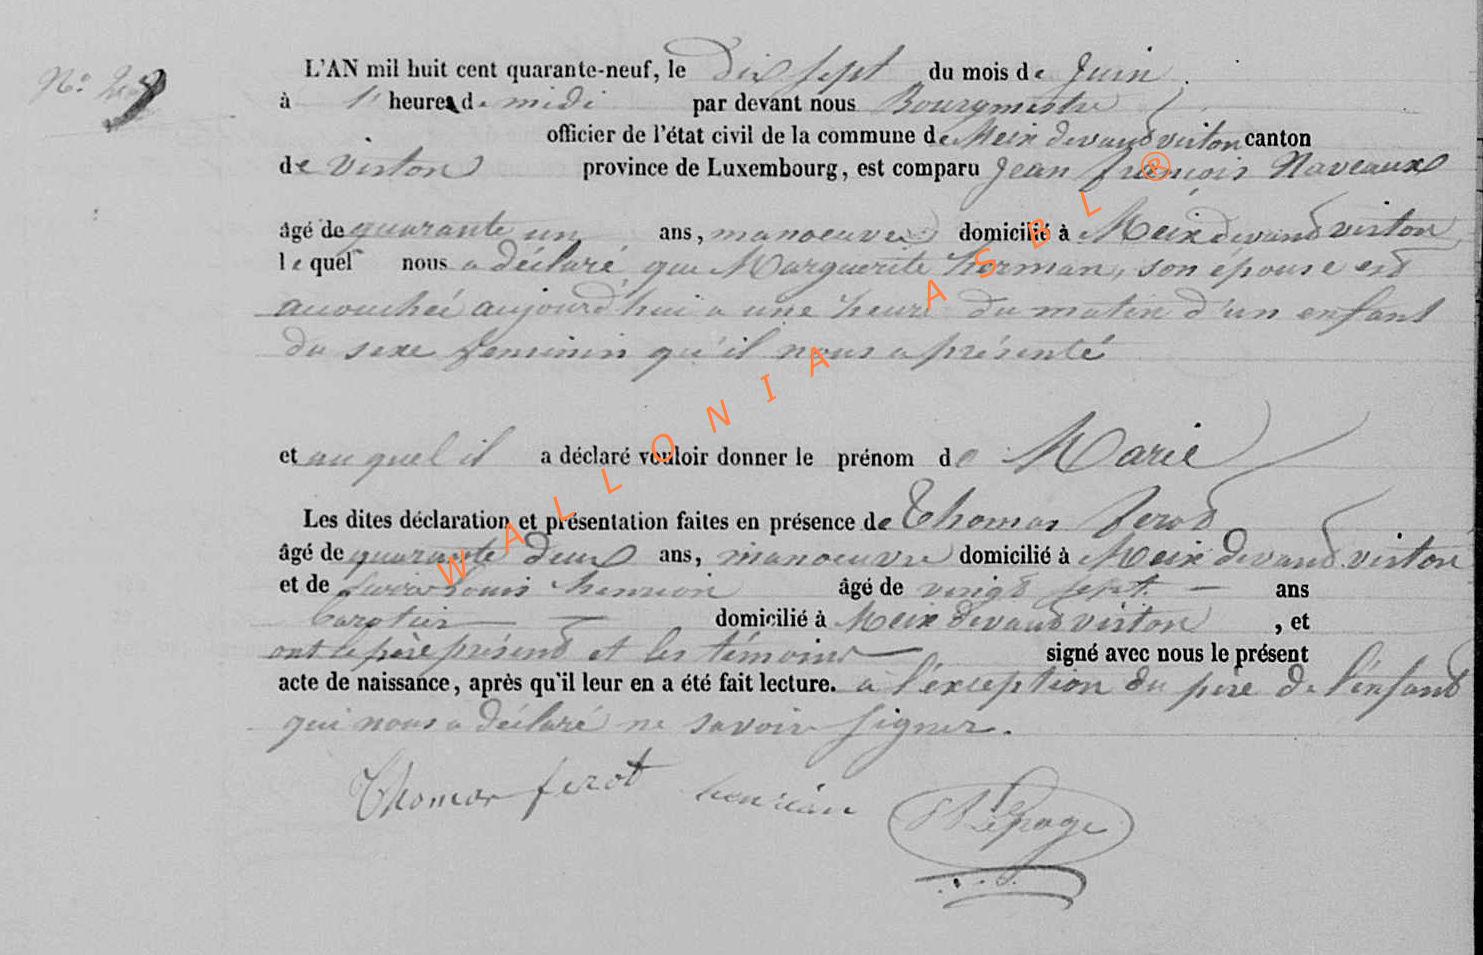 N°
L'AN mil huit cent quarante-neuf, le dix sept du mois de Juin
à 1' heure de midi par devant nous Bourgmestre
officier de l'état civil de la commune de Meix devand virton canton
de virton province de Luxembourg, est comparu Jean françois Naveaux
âgé de quarante un ans, manoeuvre domicilié à Meix devand virton
lequel nous a déclaré que Marguerite herman, son épouse est
accouchée aujourd'hui a une heure du matin d'un enfant
du sexe feminin qu'il nous a présenté
et auquel il a déclaré vouloir donner le prénom de Marie
Les dites déclaration et présentation faites en présence de Thomas ferod
âgé de quarante deux ans, manoeuvre domicilié à Meix devand virton
et de Louis henrion âgé de vingt sept ans
domicilié à Meix devand virton, et
ont le père présend et les témoins signé avec nous le présent
acte de naissance, après qu'il leur en a été fait lecture. a l'exception du père de l'enfand
qui nous a déclaré ne savoir signer.
Thomas ferot henrion Lepage
WALLONIA ASBL ®